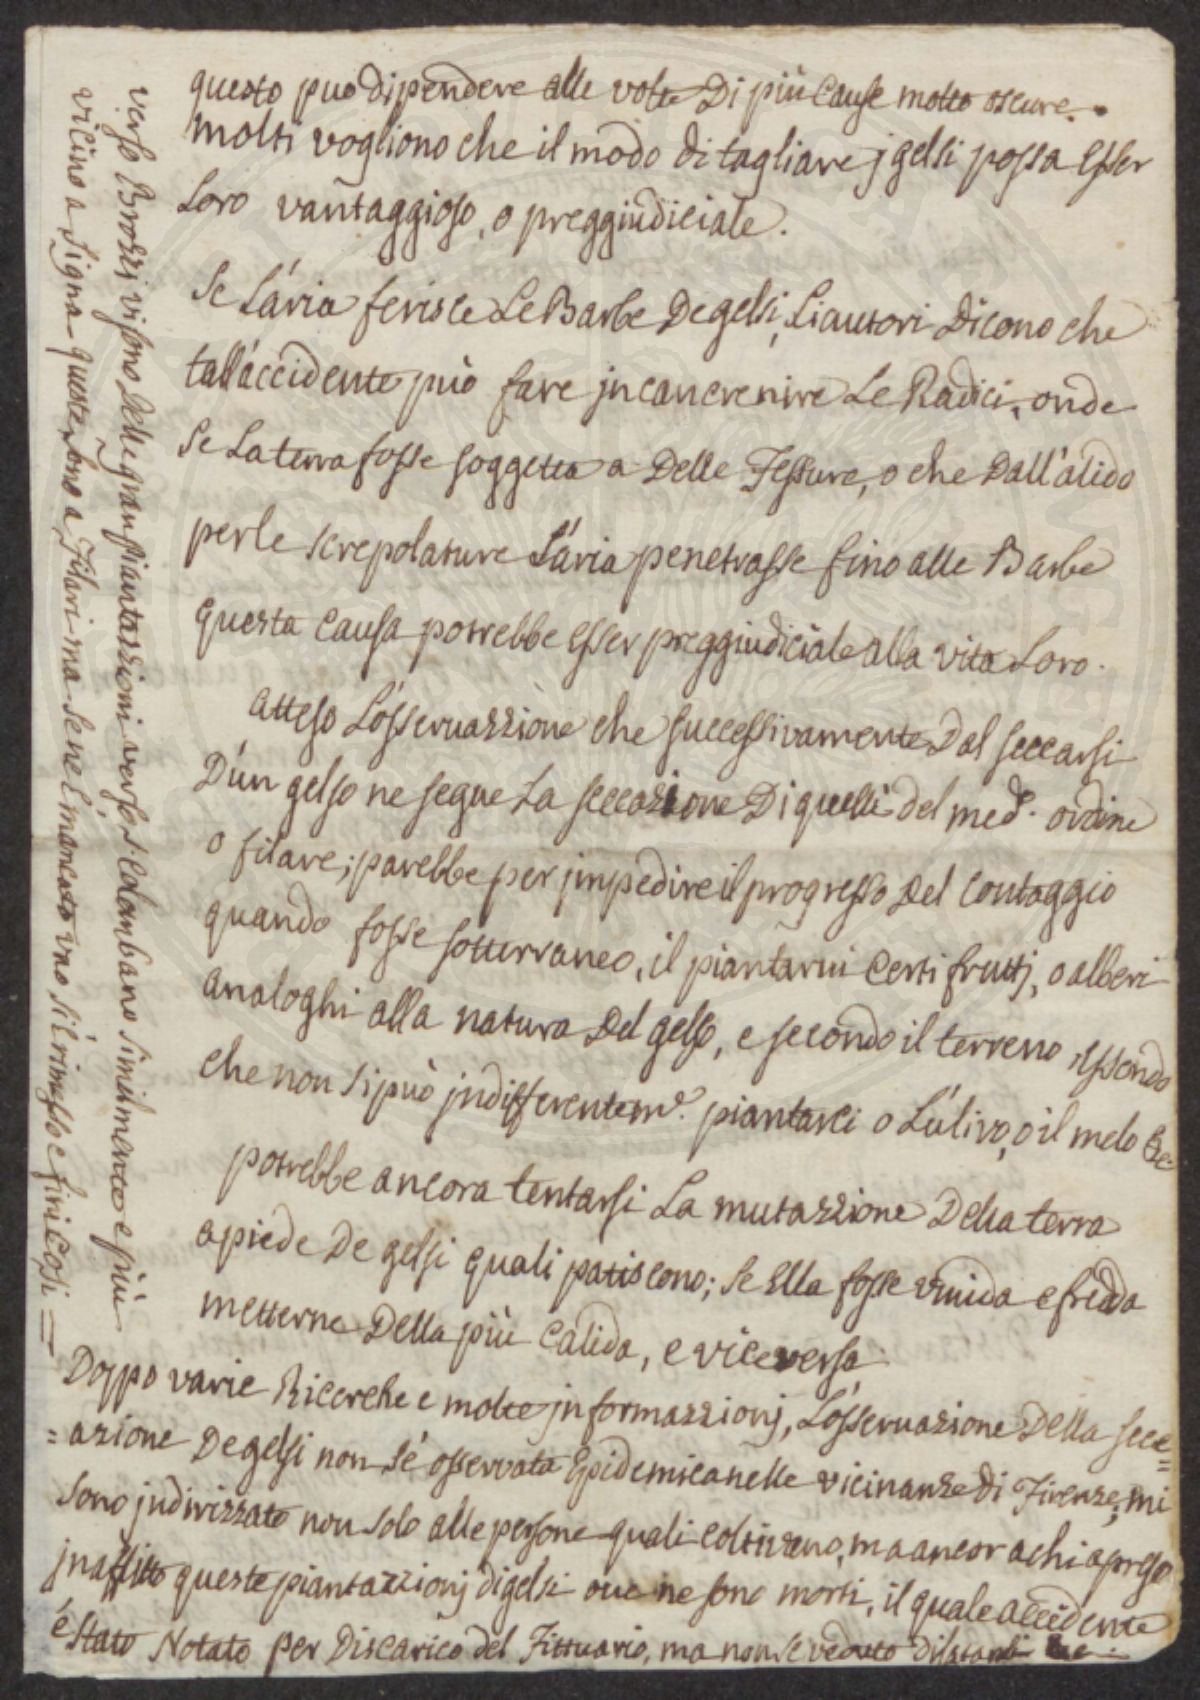 questo puo dipendere alle volte Di più Cause molto oscure.
molti vogliono che il modo di tagliare j gelsi possa Esser
Loro vantaggioso, o preggiudiciale.
Se L'aria ferisce Le Barbe De gelsi, Li autori Dicono che
tall'accidente può fare jncancrenire Le Radici, onde
se La terra fosse soggetta a Delle Fessure, o che Dall'alido
per le screpolature L'aria penetrasse fino alle Barbe
questa Causa potrebbe Esser preggiudiciale alla vita Loro.
atteso L'osservazzione che successivamente Dal seccarsi
D'un gelso ne segue La seccazione Di quelli del med.º ordine
o filare; parebbe per jmpedire il progresso Del Contaggio
quando fosse sotterraneo, il piantarvi Certi fruttj, o alberi
analoghi alla natura Del gelso, e secondo il terreno, Essendo
che non si può jndifferentem.e piantarci o L'ulivo, o il melo &c.
potrebbe ancora tentarsi La mutazzione Della terra
a piede De gelsi quali patiscono; se Ella fosse vmida e fredda
metterne Della più Calida, e viceversa
Doppo varie Ricerche e molte jnformazzionj, L'osservazione Della secc=
=azione De gelsi non s'é osservata Epidemica nelle vicinanze di Firenze, mi
sono jndirizzato non solo alle persone quali coltivano, ma ancor a chi a preso
jn affitto queste piantazzionj di gelsi ove ne sono morti, il quale accidente
é stato Notato per Discarico del Fittuario, ma non s'e veduto Dilatarsi
verso Brozzi vi sono Delle gran piantazzioni verso S. Colombano similmente e più
vicino a Signa queste sono a Filari ma se ne é mancato uno si é rimesso e finì così =